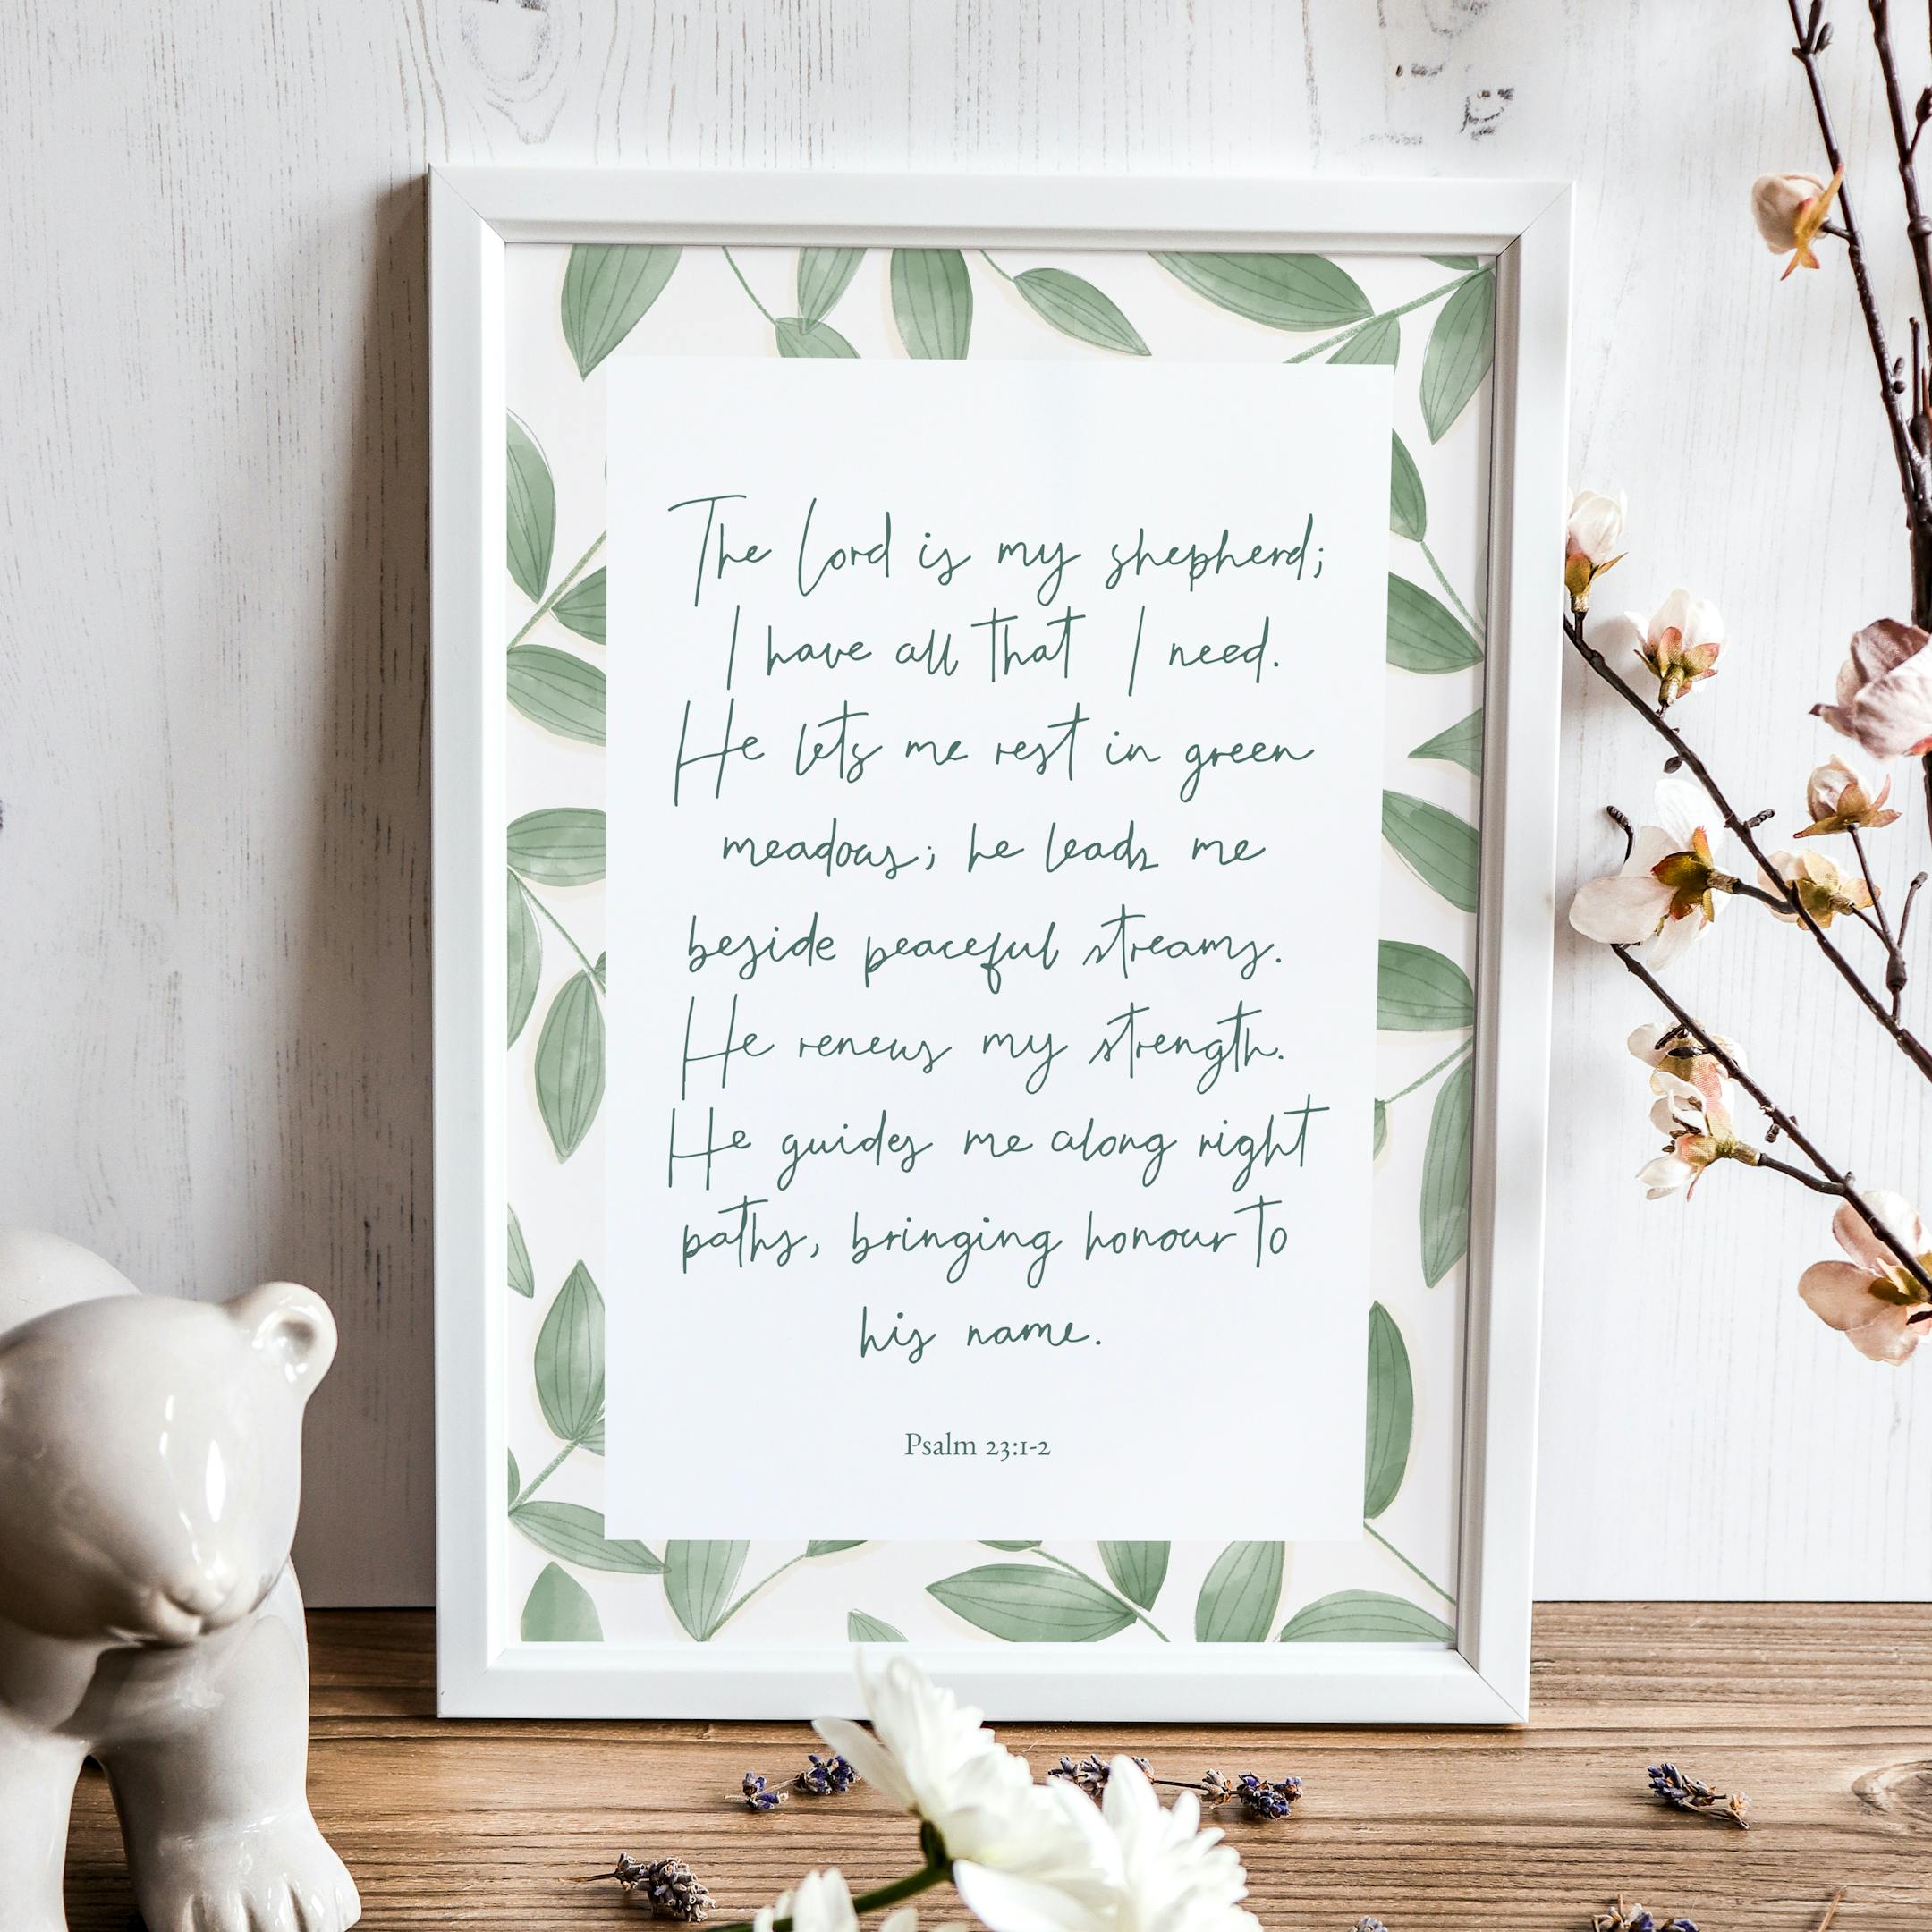 The Lord is my shepherd;
I have all that I need.
He lets me rest in green
meadows; he leads me
beside peaceful streams.
He renews my strength.
He guides me along right
paths, bringing honour to
his name.
Psalm 23:1-2